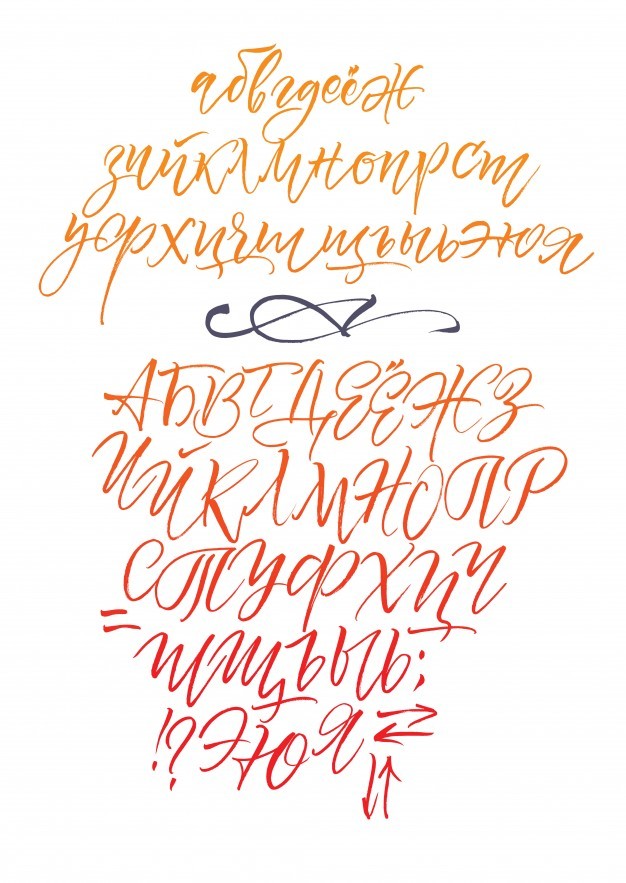 абвгдеёж
зийклмнопрст
уфхцчшщъыьэюя
АБВГДЕЁЖЗ
ИЙКЛМНОПР
СТУФХЦЧ
=ШЩЪЫЬ;
!?ЭЮЯ⇄
⇅